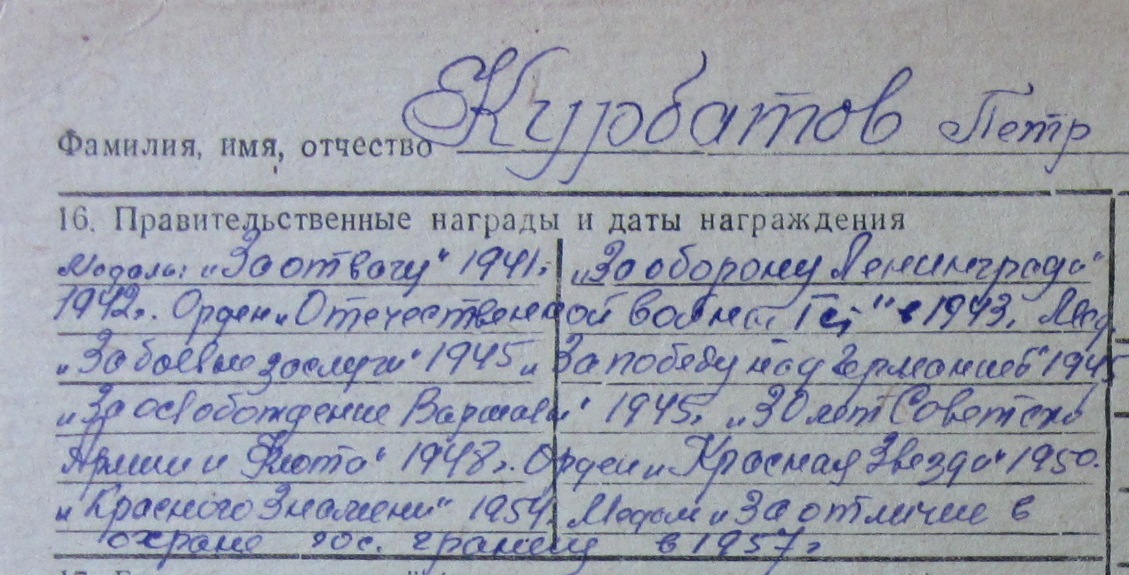 Фамилия, имя, отчество Курбатов Петр
16. Правительственные награды и даты награждения
Медаль: „За отвагу" 1941г. „За оборону Ленинграда"
1942г. Орден „Отечественной войны I ст" в 1943г. Мед.
„За боевые заслуги" 1945 „За победу над Германией" 1945
„За освобождение Варшавы" 1945г. „30 лет Советской
Армии и Флота" 1948г. Орден „Красная Звезда" 1950.
„Красного Знамени" 1954. Медаль „За отличие в
охране гос. границы в 1957г